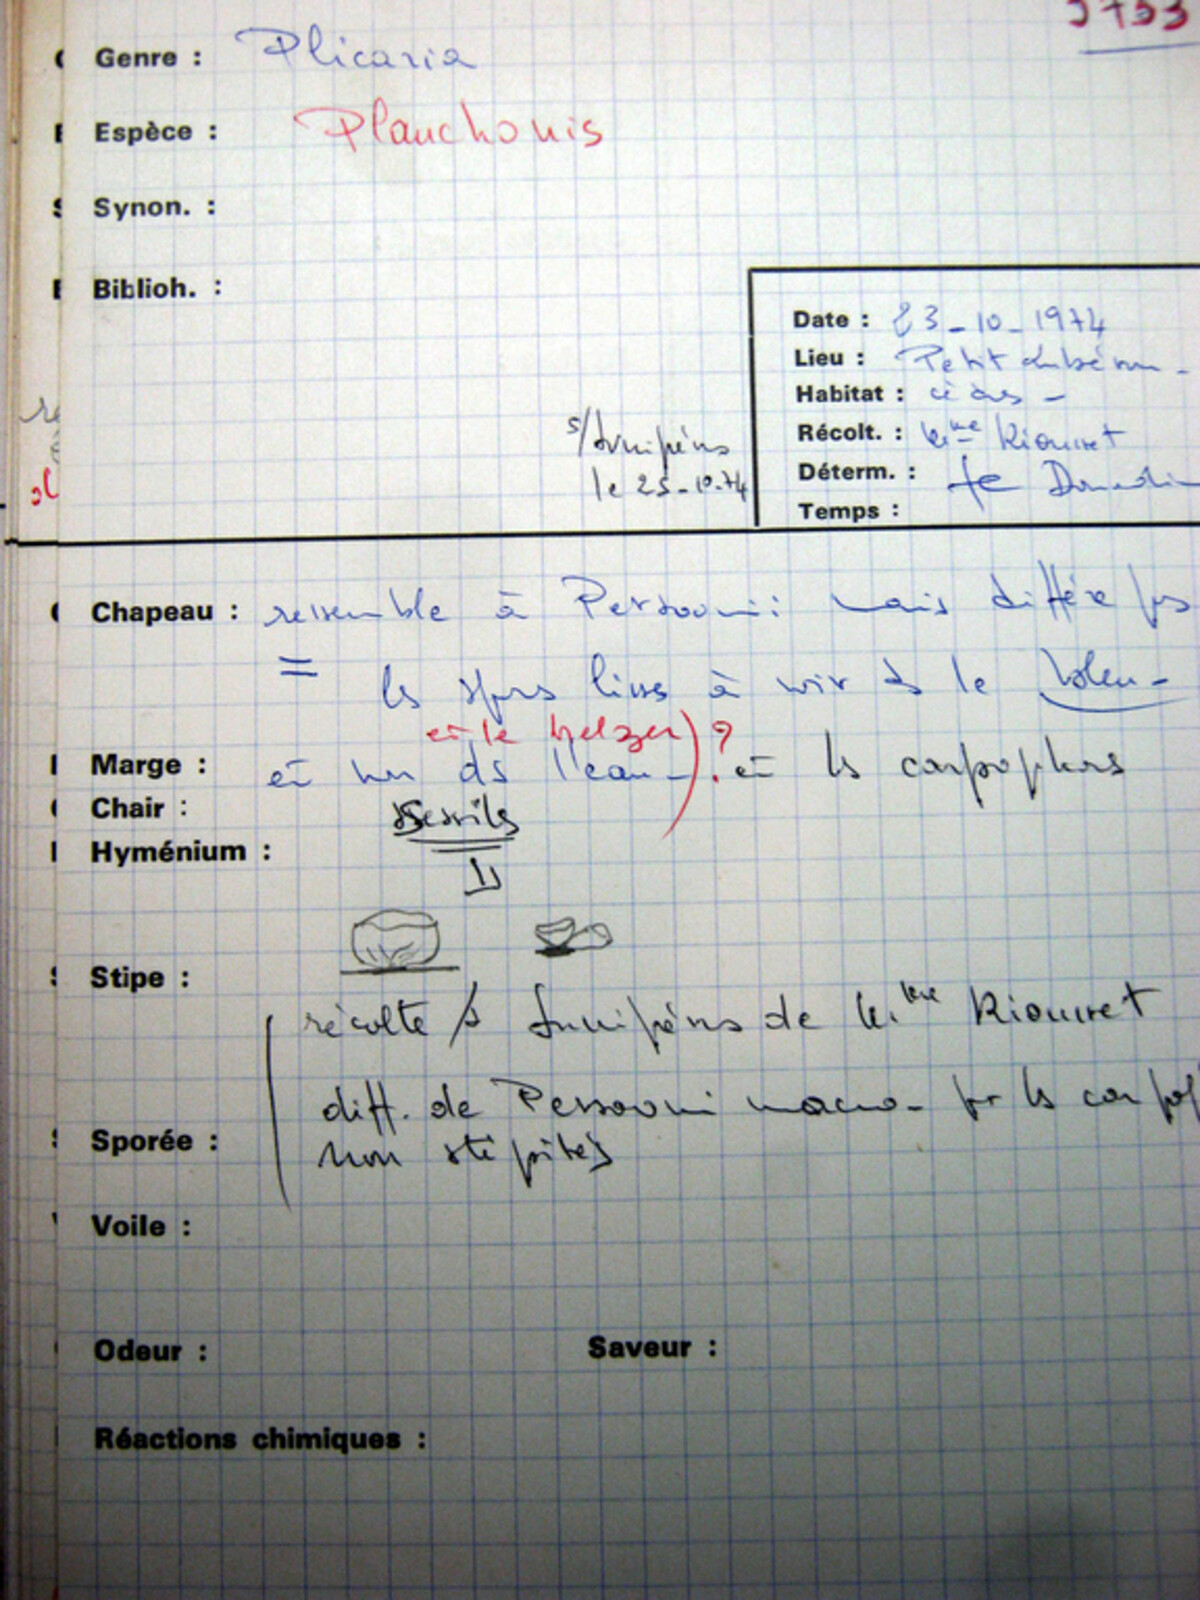 Genre : Plicaria
Espèce : Planchonis
Synon. :
Biblioh. :
Date : 23-10-1974
Lieu : Petit Lubéron -
Habitat : cèdres -
Récolt. : Mme Riousset
Déterm. :
Temps :
s/Junipérus
le 25-10-74
Chapeau : ressemble à Persooni : mais diffère par
= les spores lisses à voir ds le bleu -
et le Melzer) ?
Marge : et non ds l'eau - . et ls carpophores
Chair : Sessiles
Hyménium :
Stipe :
récolte /s Junipérus de Mme Riousset
diff. de Persooni macro - pr ls carpo
Sporée : non stipités
Voile :
Odeur : Saveur :
Réactions chimiques :